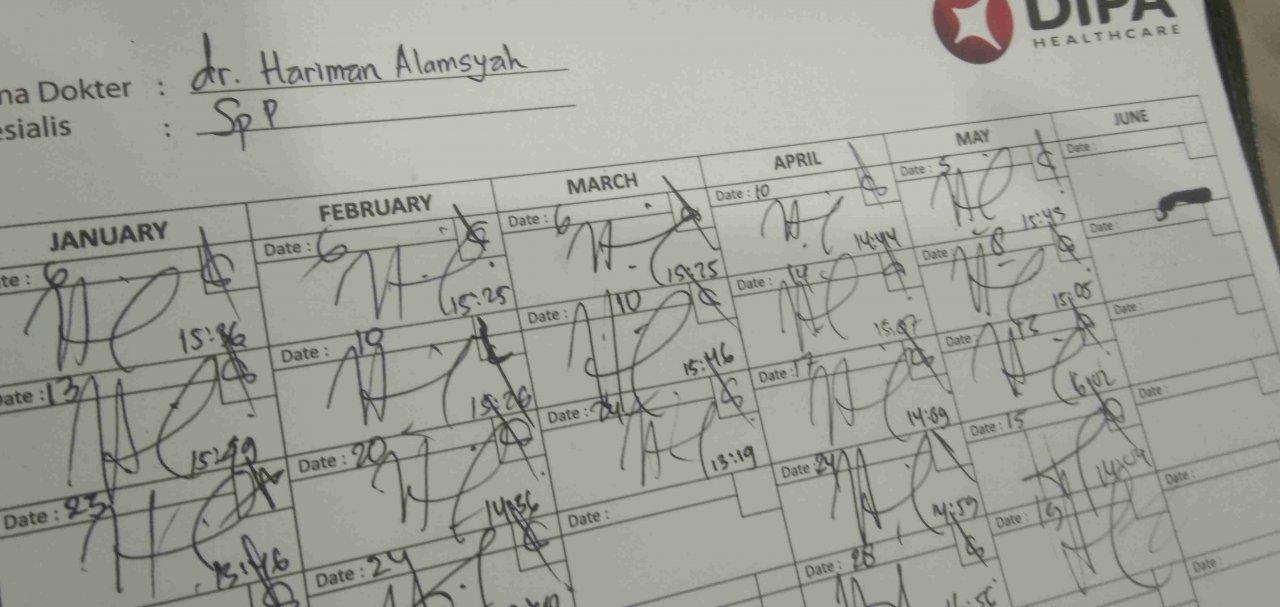 DIPA
HEALTHCARE
na Dokter : dr. Hariman Alamsyah
esialis : Sp P
JANUARY
te : 6
15:36
ate : 13
15:49
Date : 23
15:46
FEBRUARY
Date : 6
15:25
Date : 19
15:26
Date : 20
14:36
Date : 24
MARCH
Date : 6
15:25
Date : 10
15:46
Date : 24
13:19
Date :
APRIL
Date : 10
14:44
Date : 14
15:07
Date : 17
14:09
Date : 24
14:59
Date : 28
MAY
Date : 5
15:45
Date : 8
15:05
Date : 12
Date : 15
14:04
Date : 19
JUNE
Date :
Date :
Date :
Date :
Date :
Date :